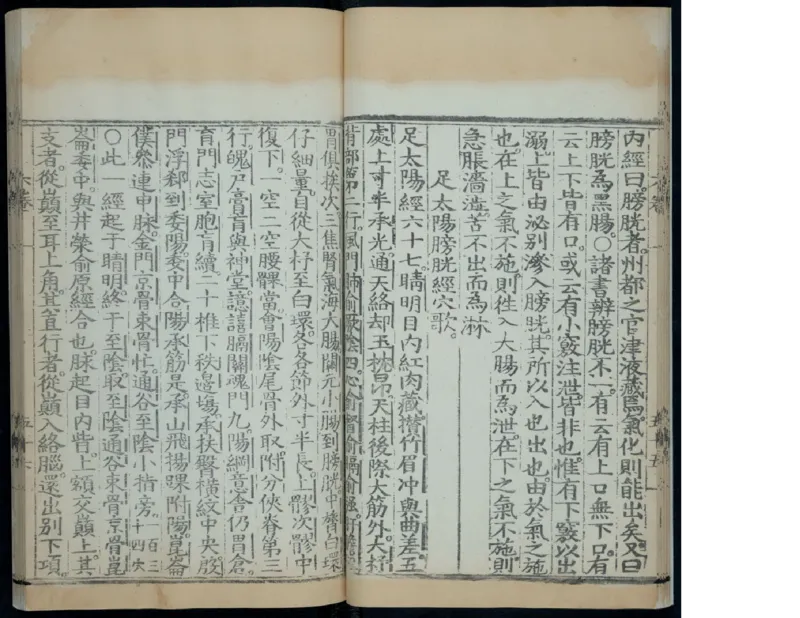 內經曰。膀胱者。州都之官。津液藏焉。氣化則能出矣。又曰
膀胱爲黑腸。○諸書辨膀胱不一。有云有上口無下口。有
云上下皆有口。或云有小竅注泄。皆非也。惟有下竅以出
溺。上皆由泌別滲入膀胱。其所以入也出也。由於氣之施
也。在上之氣不施。則徃入大腸而爲泄。在下之氣不施。則
急脹濇澁。苦不出而爲淋
足太陽膀胱經穴歌。
足太陽經六十七。睛明目內紅肉藏。攅竹眉冲與曲差。五
處上寸半承光。通天絡却玉枕昂。天柱後際大筋外。大杼
背部第二行。風門肺俞厥陰四。心俞督俞膈俞強。肝膽
胃俱挨次。三焦腎氣海大腸。關元小腸到膀胱。中膂白環
仔細量。自從大杼至白環。各各節外寸半長。上髎次髎中
復下。一空二空腰髁當。會陽陰尾骨外取。附分俠脊第三
行。魄戶膏肓與神堂。譩譆膈關魂門九。陽綱意舍仍胃倉。
肓門志室胞肓續。二十椎下秩邊塲。承扶臀橫紋中央。殷
門浮郄到委陽。委中合陽承筋是。承山飛揚踝附陽。崑崙
僕參連申脉。金門京骨束骨忙。通谷至陰小指旁。一百三
十四穴
○此一經起于睛明。終于至陰。取至陰通谷束骨京骨崑
崙委中。與井榮俞原經合也。脉起目內眥。上額交巔上。其
支者。從巔至耳上角。其直行者。從巔入絡腦。還出別下項。